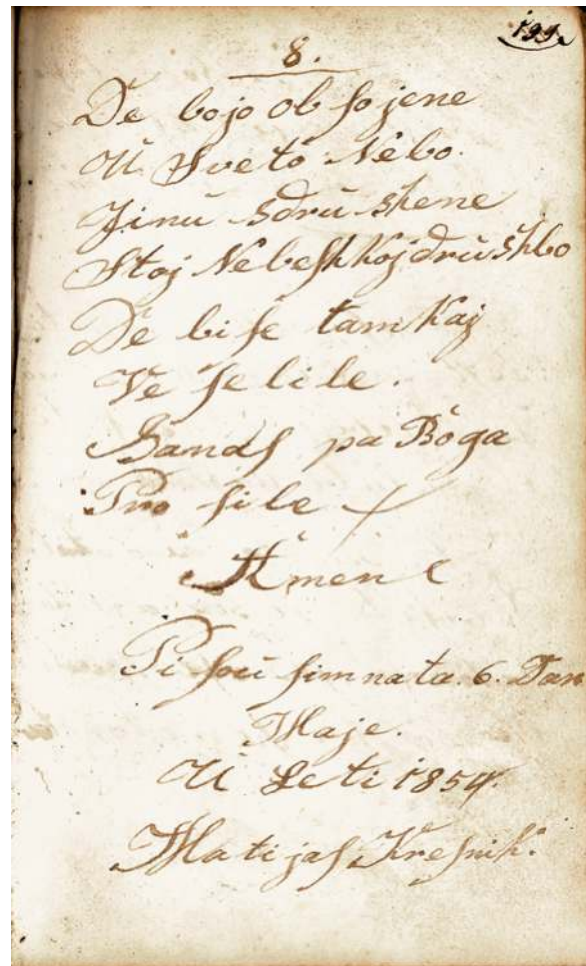 199.
8.
De bojo obſojene
U Sveto Nebo.
Jinu sdrushene
Stoj Nebeſhkoj drushbo
De biſe tamkaj
Veſelile.
Sa naſ pa Boga
Proſile
Amen
Piſou ſim na ta. 6. Dan
Maje.
U Leti 1854.
Matijaſ Kreſnik.